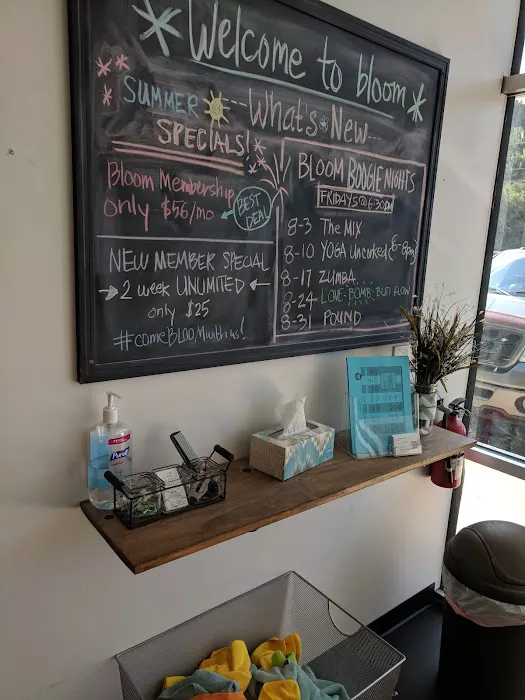 Welcome to bloom
SUMMER
SPECIALS!
What's New
Bloom Membership
only - $56/mo
BEST
DEAL
NEW MEMBER SPECIAL
2 week UNLIMITED
only $25
#comeBLOOMwithus!
BLOOM BOOGIE NIGHTS
FRIDAYS @ 6:30PM
8-3 The MIX
8-10 YOGA Uncorked (6-8pm)
8-17 ZUMBA
8-24 LOVE-BOMB-BUTI FLOW
8-31 POUND
Purell